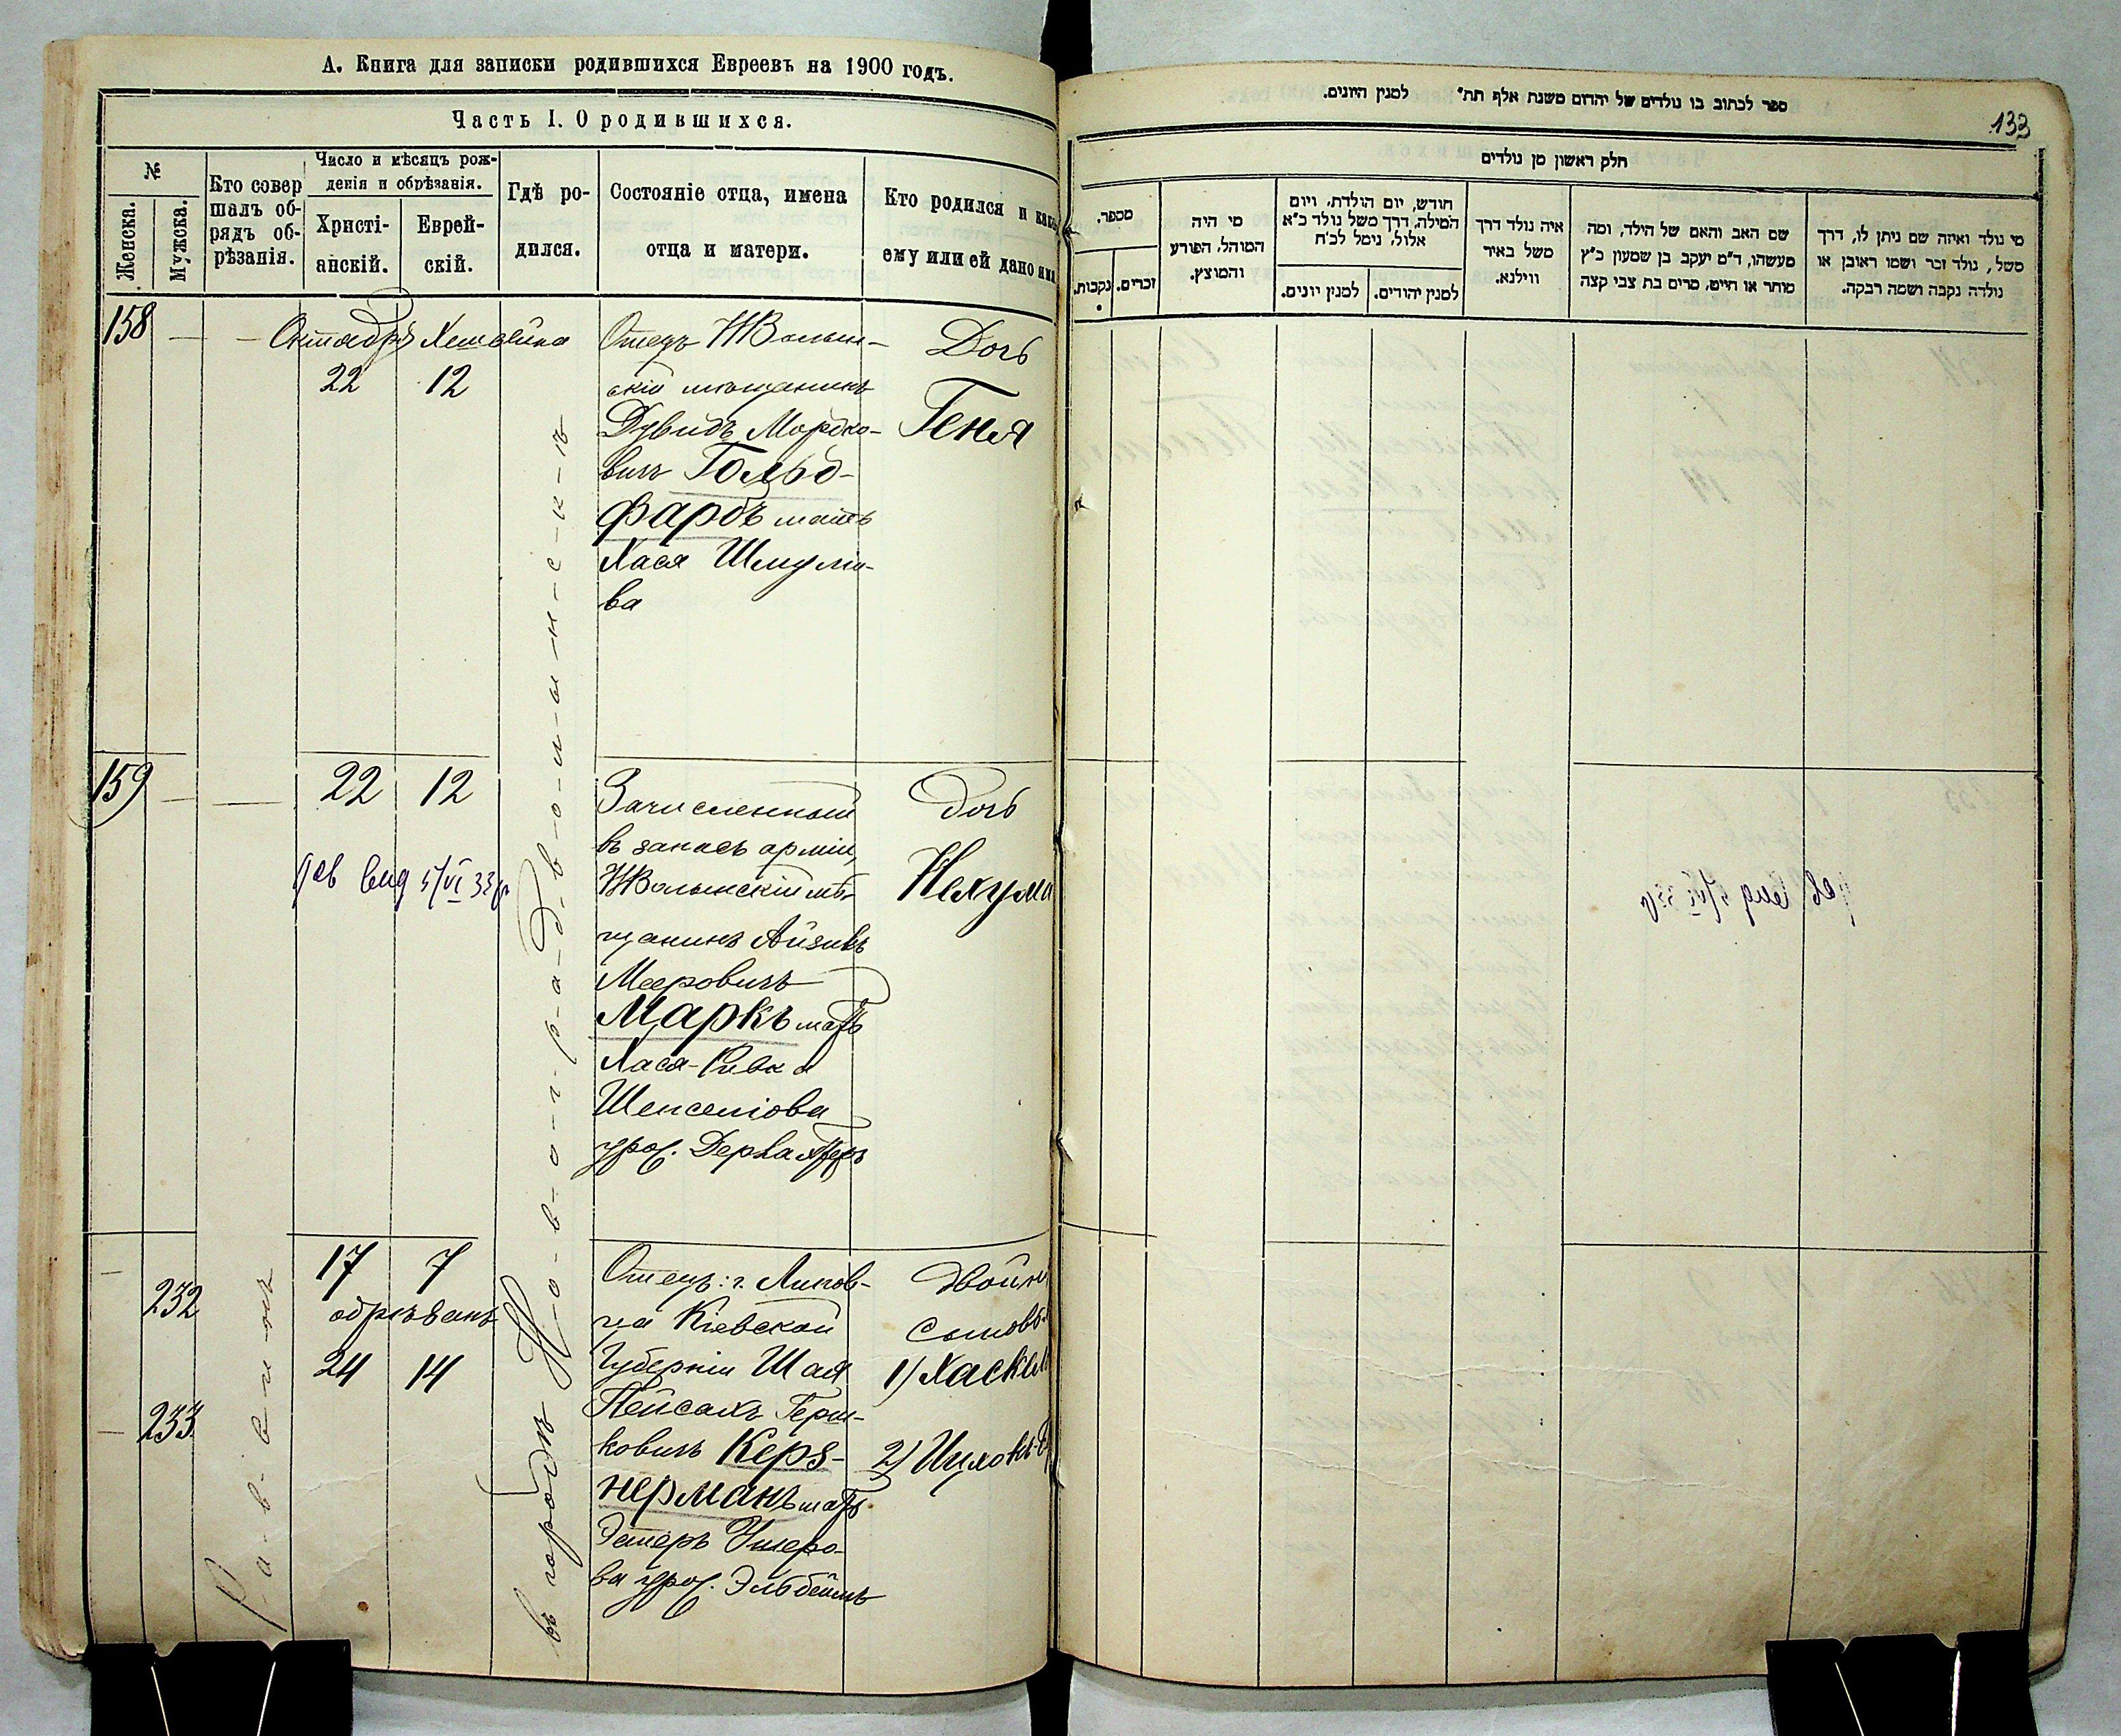 А. Книга для записки родившихся Евреевъ на 1900 годъ.
Часть I. О родившихся.
№
Женска.
Мужска.
Кто совер
шалъ об-
рядъ об-
рѣзанія.
Число и мѣсяцъ рож-
денія и обрѣзанія.
Христі-
анскій.
Еврей-
скій.
Гдѣ ро-
дился.
Состояніе отца, имена
отца и матери.
Кто родился и како
ему или ей дано им
158 — — Октябрь Хешвана
22 12
Отецъ НВолын-
скій мѣщанинъ
Дувидъ Мордко-
вичъ Гольд-
фарбъ мать
Хася Шмуліо-
ва
Дочь
Геня
159 — — 22 12
5/VI 33
Зачисленный
въ запасъ арміи,
НВолынскій мѣ-
щанинъ Айзикъ
Мееровичъ
Маркъ мать
Хася-Ривка
Шепселіова
Дочь
Нехума
— 232
17 7
обрѣзанъ
24 14
— 233
Отецъ: г. Липов-
ца Кіевской
Губерніи Шая
Пейсахъ Герш-
ковичъ Керз-
нерманъ мать
Эстеръ Ушеро-
ва
Двойни
сыновья
1) Хаскель
2)
Раввинъ
въ городѣ Н-о-в-о-г-р-а-д-в-о-л-ы-н-с-к-ѣ
ספר לכתוב בו נולדים של יהדום משנת אלף תת״ למנין היונים.
133
חלק ראשון מן נולדים
מספר.
נקבות.
זכרים.
מי היה
המוהל, הפורע
והמוצץ.
חודש, יום הולדת, ויום
המילה, דרך משל נולד כ״א
אלול, נימל לכ״ח
למנין יונים.
למנין יהודים.
איה נולד דרך
משל באיר
ווילנא.
שם האב והאם של הילד, ומה
מעשהו, ד״מ יעקב בן שמעון כ״ץ
סוחר או חייט, מרים בת צבי קצה
מי נולד ואיזה שם ניתן לו, דרך
משל, נולד זכר ושמו ראובן או
נולדה נקבה ושמה רבקה.